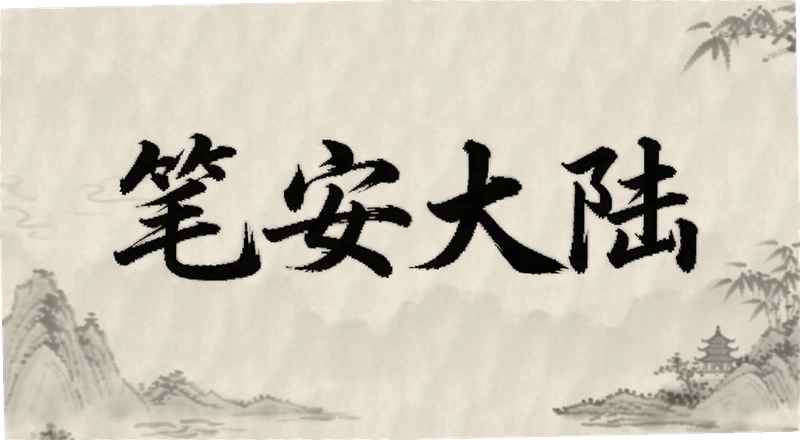 笔安大陆